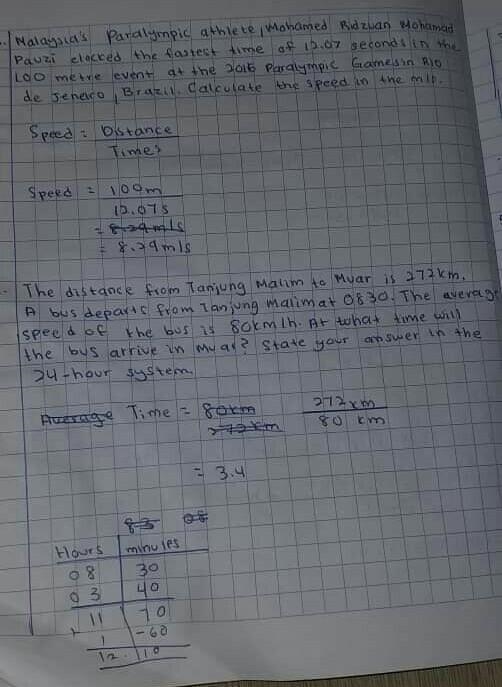 Malaysia's Paralympic athlete, Mohamed Ridzuan Mohamad
Pauzi clocked the fastest time of 12.07 seconds in the
100 metre event at the 2016 Paralympic Games in Rio
de Jeneiro, Brazil. Calculate the speed in the m/s.
Speed = Distance
Times
Speed = 100m
12.07s
= 8.29m/s
= 8.29m/s
The distance from Tanjung Malim to Muar is 272km.
A bus departs from Tanjung Malim at 0830. The average
speed of the bus is 80km/h. At what time will
the bus arrive in Muar? State your answer in the
24-hour system.
Average Time = 80km 272km
272km 80 km
= 3.4
83 08
Hours minutes
08 30
03 40
11 70
+ 1 -60
12. 10